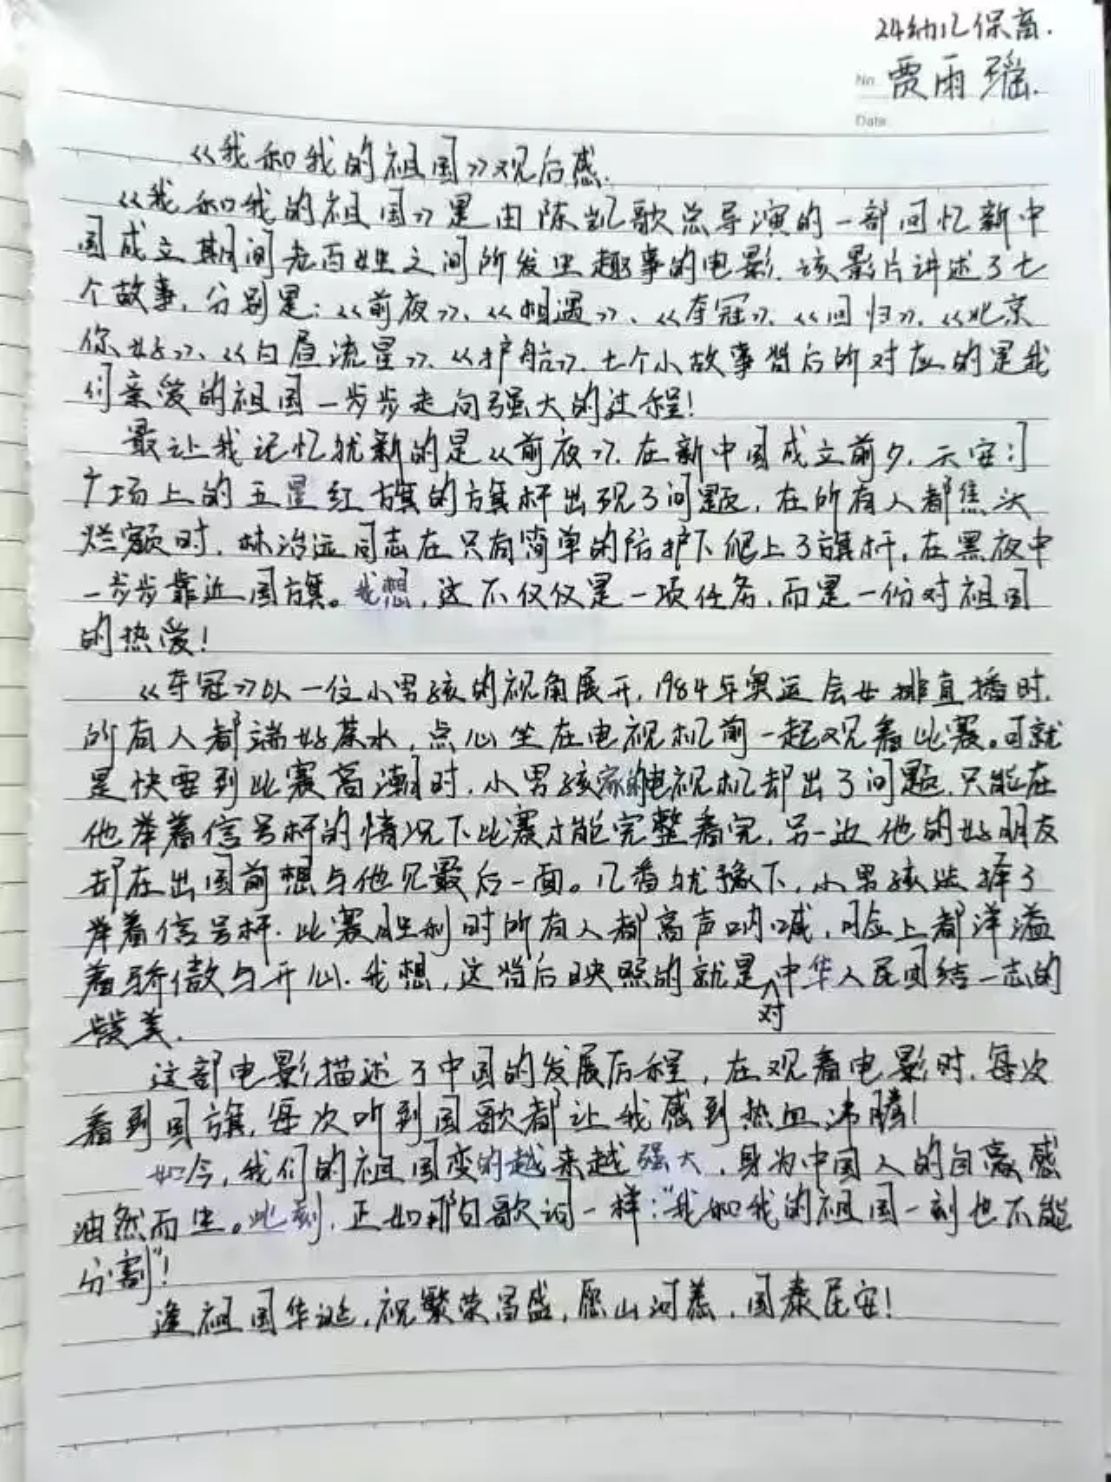 24幼儿保育.
No.
贾雨瑶.
Date.
《我和我的祖国》观后感.
《我和我的祖国》是由陈凯歌总导演的一部回忆新中
国成立期间老百姓之间所发生趣事的电影.该影片讲述了七
个故事,分别是:《前夜》、《相遇》、《夺冠》、《回归》、《北京
你好》、《白昼流星》、《护航》.七个小故事背后所对应的是我
们亲爱的祖国一步步走向强大的过程!
最让我记忆犹新的是《前夜》.在新中国成立前夕,天安门
广场上的五星红旗的旗杆出现了问题,在所有人都焦头
烂额时,林治远同志在只有简单的防护下爬上了旗杆,在黑夜中
一步步靠近国旗。我想,这不仅仅是一项任务,而是一份对祖国
的热爱!
《夺冠》以一位小男孩的视角展开,1984年奥运会女排直播时,
所有人都端好茶水,点心坐在电视机前一起观看比赛。可就
是快要到比赛高潮时,小男孩家的电视机却出了问题,只能在
他举着信号杆的情况下比赛才能完整看完,另一边他的好朋友
却在出国前想与他见最后一面。几番犹豫下,小男孩选择了
举着信号杆.比赛胜利时所有人都高声呐喊,脸上都洋溢
着骄傲与开心.我想,这背后映照的就是对中华人民团结一志的
赞美.
这部电影描述了中国的发展历程,在观看电影时,每次
看到国旗,每次听到国歌都让我感到热血沸腾!
如今,我们的祖国变的越来越强大,身为中国人的自豪感
油然而生。此刻,正如那句歌词一样:“我和我的祖国一刻也不能
分割”!
逢祖国华诞,祝繁荣昌盛,愿山河美,国泰民安!